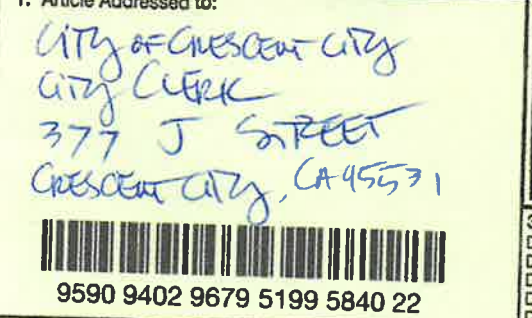 1. Article Addressed to:
CITY OF CRESCENT CITY
CITY CLERK
377 J STREET
CRESCENT CITY, CA 95531
9590 9402 9679 5199 5840 22